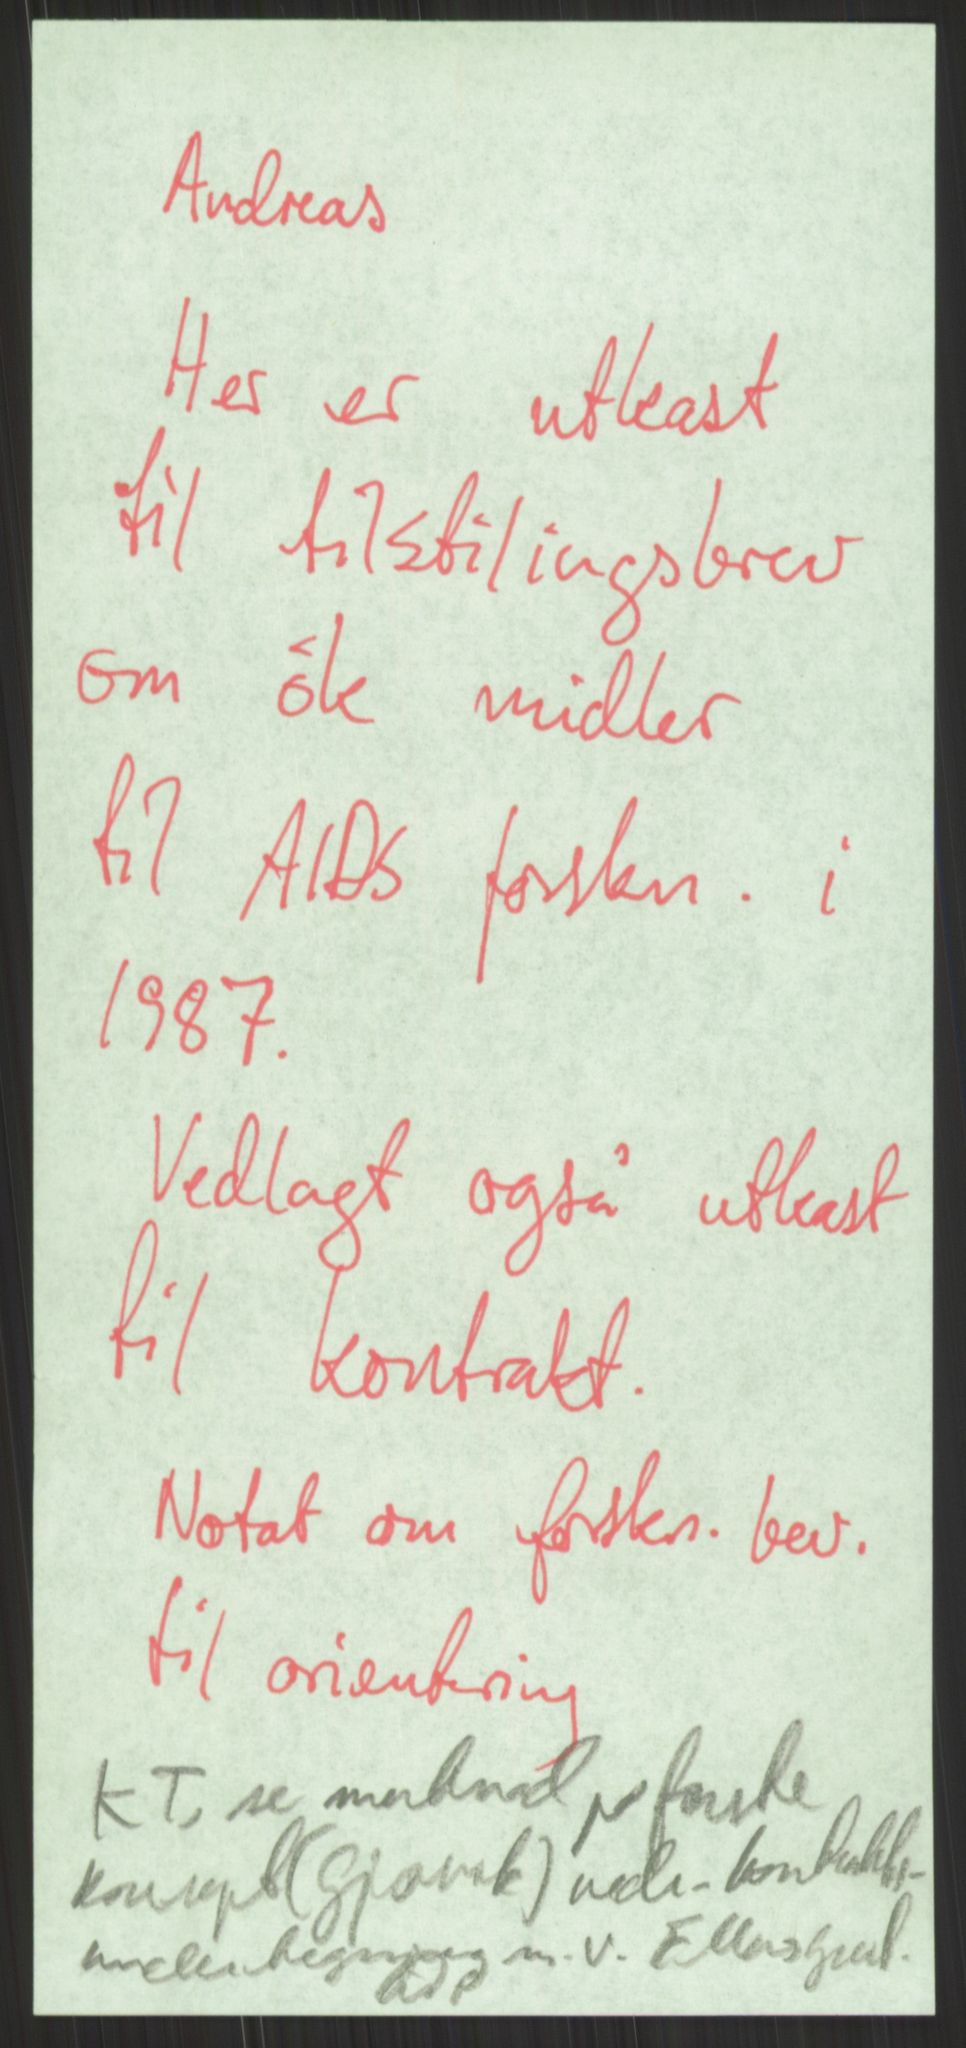 Andreas
Her er utkast
til tilstilingsbrev
om ök midler
til AIDS forskn. i
1987.
Vedlagt også utkast
til kontrakt.
Notat om forskn. bev.
til orientering
KT, se merknad på første
konsept (Gjøvik) vedr. kontrakts-
m.v.